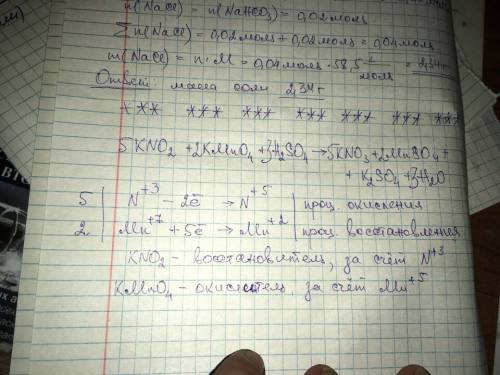 n(NaCl) = n(NaHCO₃) = 0,02 моль
∑n(NaCl) = 0,02 моль + 0,02 моль = 0,04 моль
m(NaCl) = n · M = 0,04 моль · 58,5 г/моль = 2,34 г
Ответ: масса соли 2,34 г
*** *** *** *** *** ***
5KNO₂ + 2KMnO₄ + 3H₂SO₄ → 5KNO₃ + 2MnSO₄ +
+ K₂SO₄ + 3H₂O
5 | N⁺³ − 2ē → N⁺⁵ | проц. окисления
2 | Mn⁺⁷ + 5ē → Mn⁺² | проц. восстановления
KNO₂ – восстановитель, за счёт N⁺³
KMnO₄ – окислитель, за счёт Mn⁺⁵